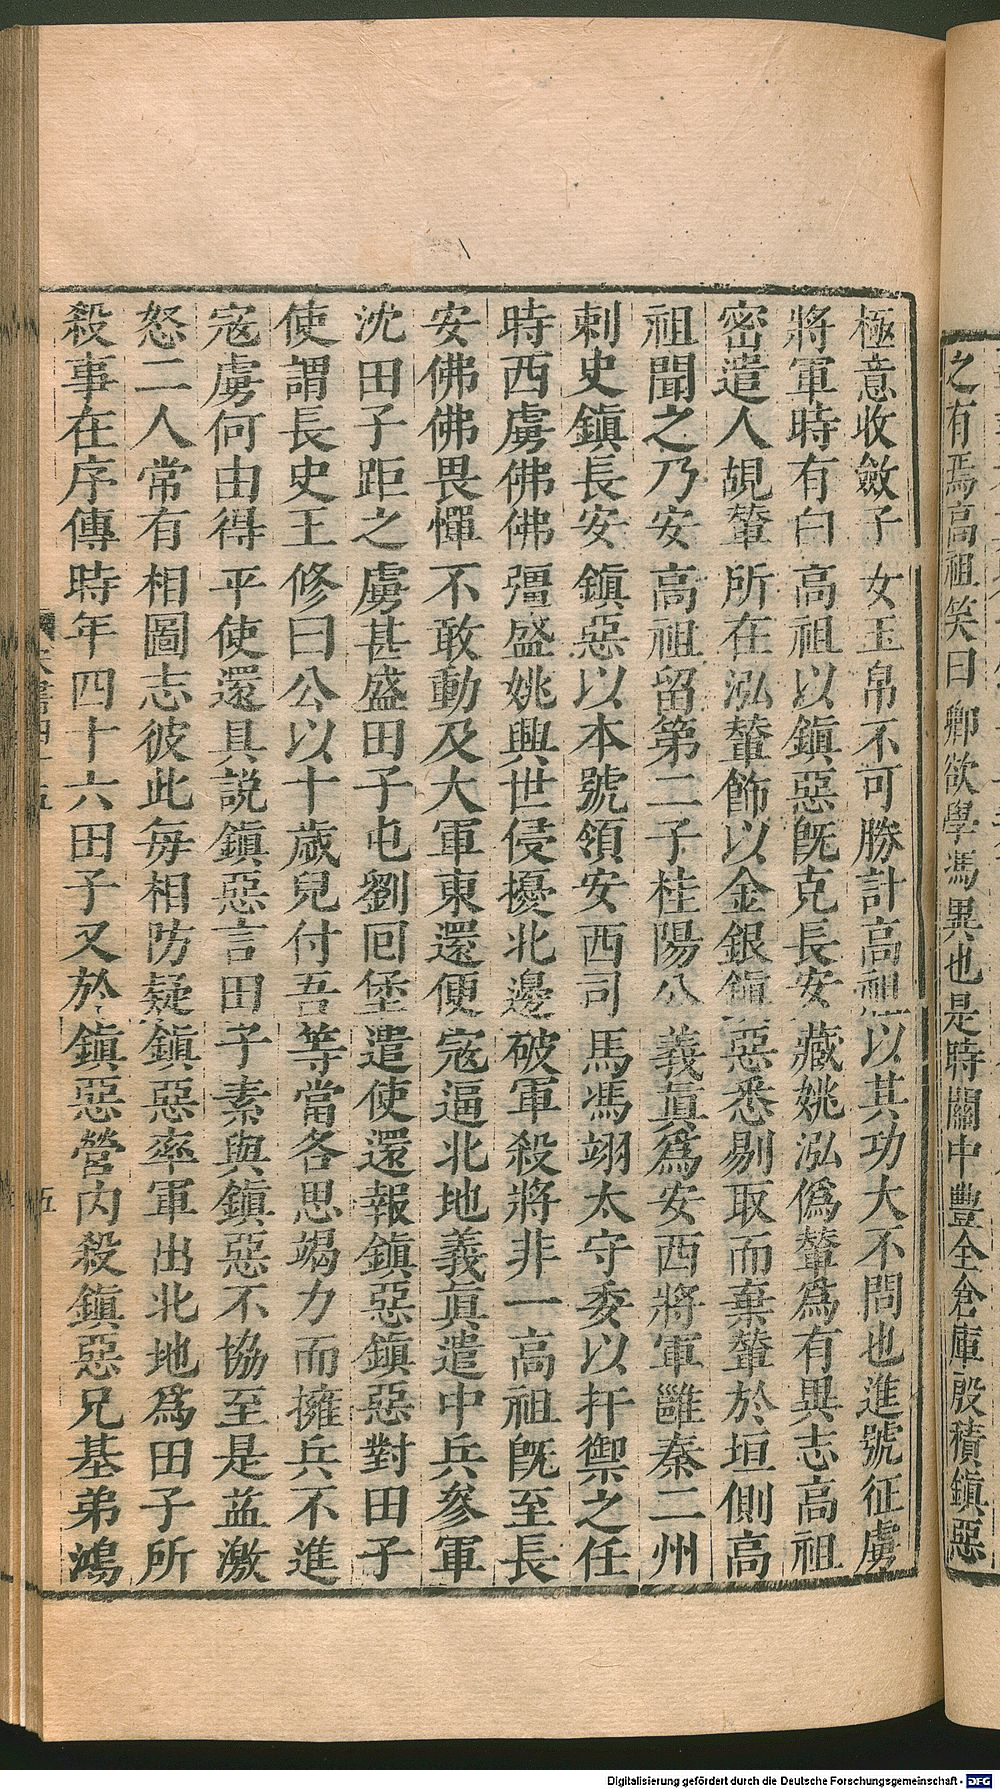 之有焉高祖笑曰卿欲學馮異也是時關中豐全倉庫殷積鎮惡
極意收斂子女玉帛不可勝計高祖以其功大不問也進號征虜
將軍時有白高祖以鎮惡旣克長安藏姚泓偽輦為有異志高祖
密遣人覘輦所在泓輦飾以金銀鎮惡悉剔取而棄輦於垣側高
祖聞之乃安高祖留第二子桂陽公義眞為安西將軍雝秦二州
刺史鎮長安鎮惡以本號領安西司馬馮翊太守委以扞禦之任
時西虜佛佛彊盛姚興世侵擾北邊破軍殺將非一高祖旣至長
安佛佛畏憚不敢動及大軍東還便寇逼北地義眞遣中兵參軍
沈田子距之虜甚盛田子屯劉囘堡遣使還報鎮惡鎮惡對田子
使謂長史王修曰公以十歲兒付吾等當各思竭力而擁兵不進
寇虜何由得平使還具說鎮惡言田子素與鎮惡不協至是益激
怒二人常有相圖志彼此每相防疑鎮惡率軍出北地為田子所
殺事在序傳時年四十六田子又於鎮惡營内殺鎮惡兄基弟鴻
五
Digitalisierung gefördert durch die Deutsche Forschungsgemeinschaft - DFG